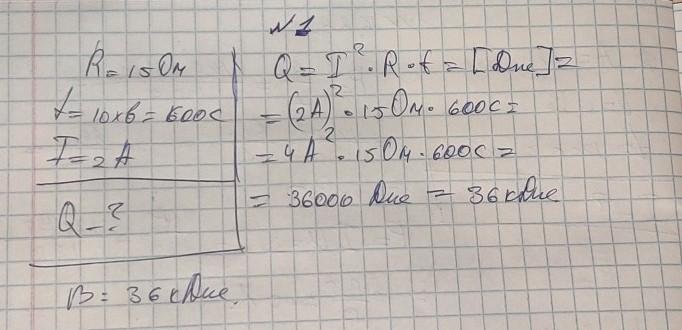 N 1
R = 15 Ом
t = 10 хв = 600 с
I = 2 А
Q - ?
Q = I² · R · t = [Дж] =
= (2 А)² · 15 Ом · 600 с =
= 4 А² · 15 Ом · 600 с =
= 36000 Дж = 36 кДж
В: 36 кДж.